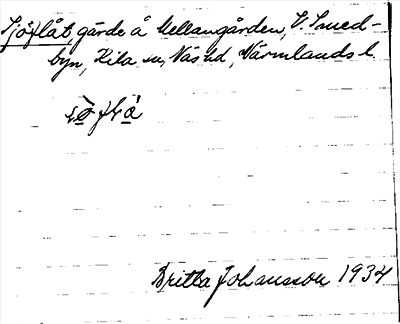 Sjöflåt, gärde å Mellangården, V. Smed-
byn, Kila sn, Näs hd, Värmlands l.
Britta Johansson 1934